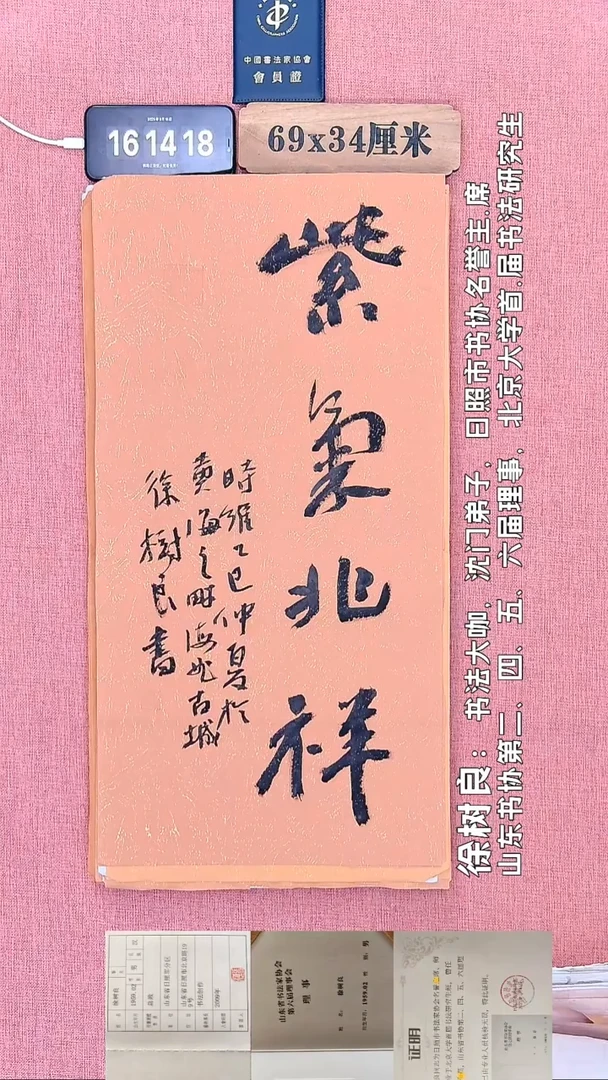 中國書法家協會
會員證
16 14 18
69x34厘米
紫氣兆祥
時維乙巳仲夏於
黄海之畔海曲古城
徐樹良書
徐树良：书法大咖，沈门弟子，日照市书协名誉主.席
山东书协第二、四、五、六届理事，北京大学首.届书法研究生
山东省书法家协会
第六届理事会
理事
徐树良
证明